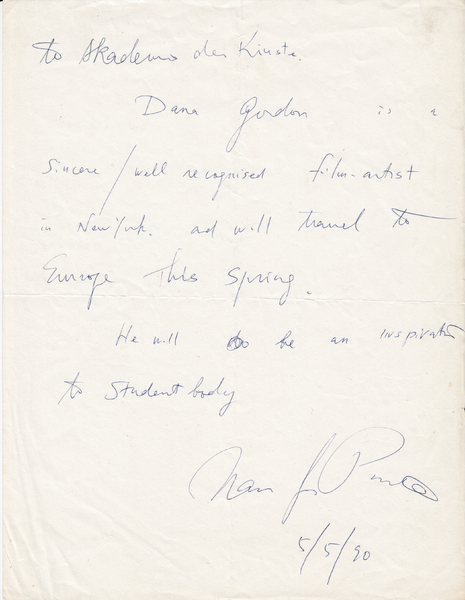 to Akademo der Kunste.
Dana Gordon is a
sincere / well recognised film-artist
in New York. ad will travel to
Europe This Spring.
He will do be an inspiration
to student body
5/5/90